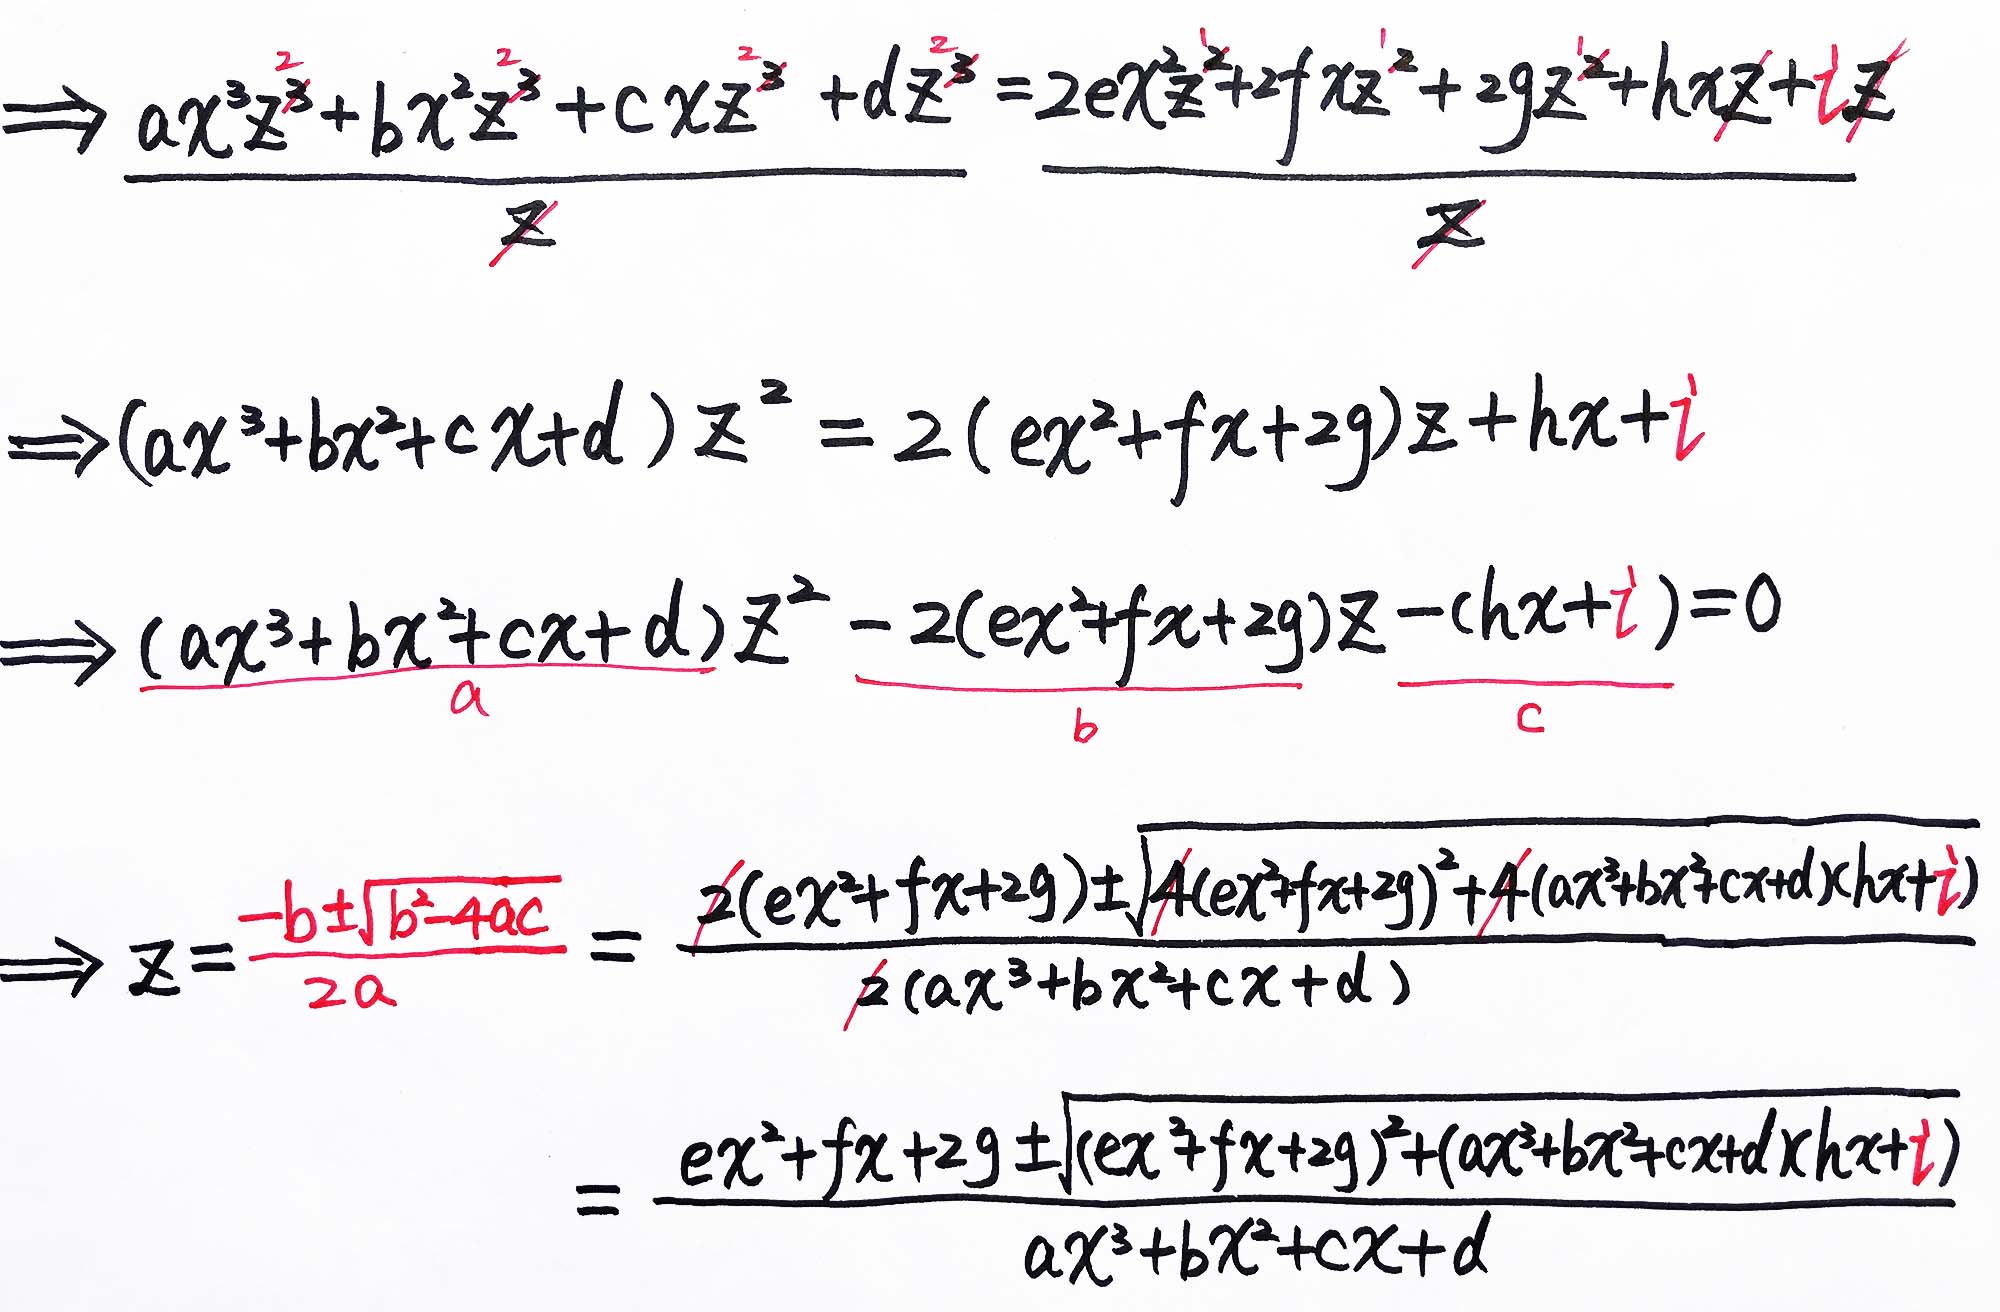 ⟹ (ax³z³² + bx²z³² + cxz³² + dz³²)/z = (2ex²z²¹ + 2fxz²¹ + 2gz²¹ + hxz + iz)/z
⟹ (ax³+bx²+cx+d)z² = 2(ex²+fx+2g)z + hx + i
⟹ (ax³+bx²+cx+d)z² − 2(ex²+fx+2g)z − (hx+i) = 0
a b c
⟹ z = (−b±√(b²−4ac))/(2a) = (2(ex²+fx+2g)±√(4(ex²+fx+2g)²+4(ax³+bx²+cx+d)(hx+i)))/(2(ax³+bx²+cx+d))
= (ex²+fx+2g±√((ex²+fx+2g)²+(ax³+bx²+cx+d)(hx+i)))/(ax³+bx²+cx+d)